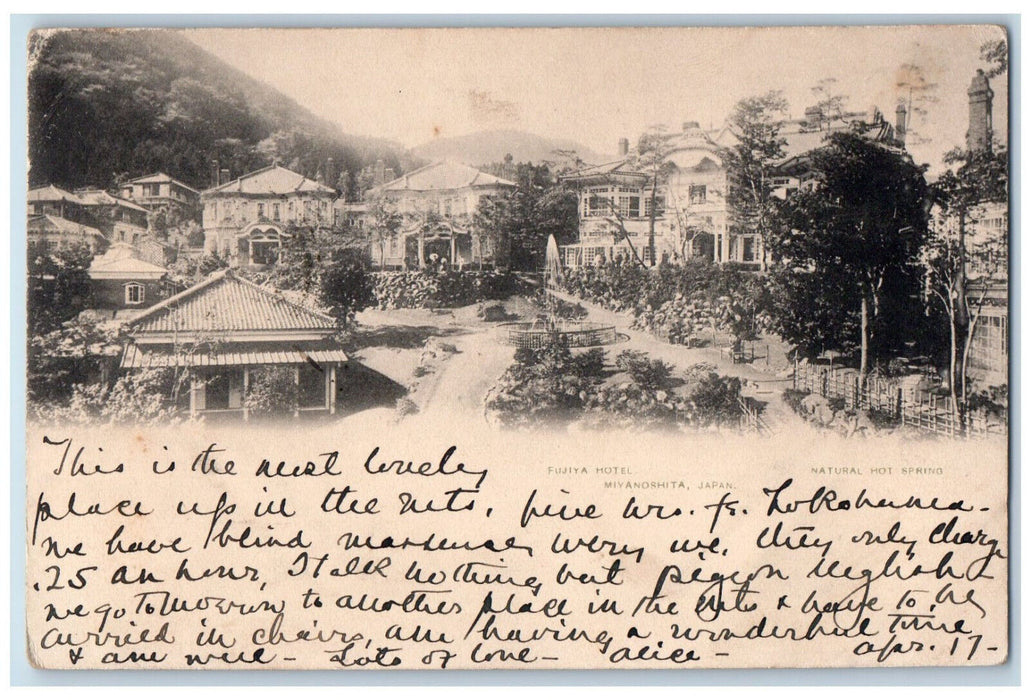 FUJIYA HOTEL.
MIYANOSHITA, JAPAN.
NATURAL HOT SPRING
This is the most lovely
place up in the mts, five hrs. fr. Yokohama-
we have blind masseuses every we. they only charge
.25 an hour, I talk nothing but pigeon English-
we go tomorrow to another place in the mts & have to be
carried in chairs, am having a wonderful time
& am well - Lots of love - Alice - Apr. 17